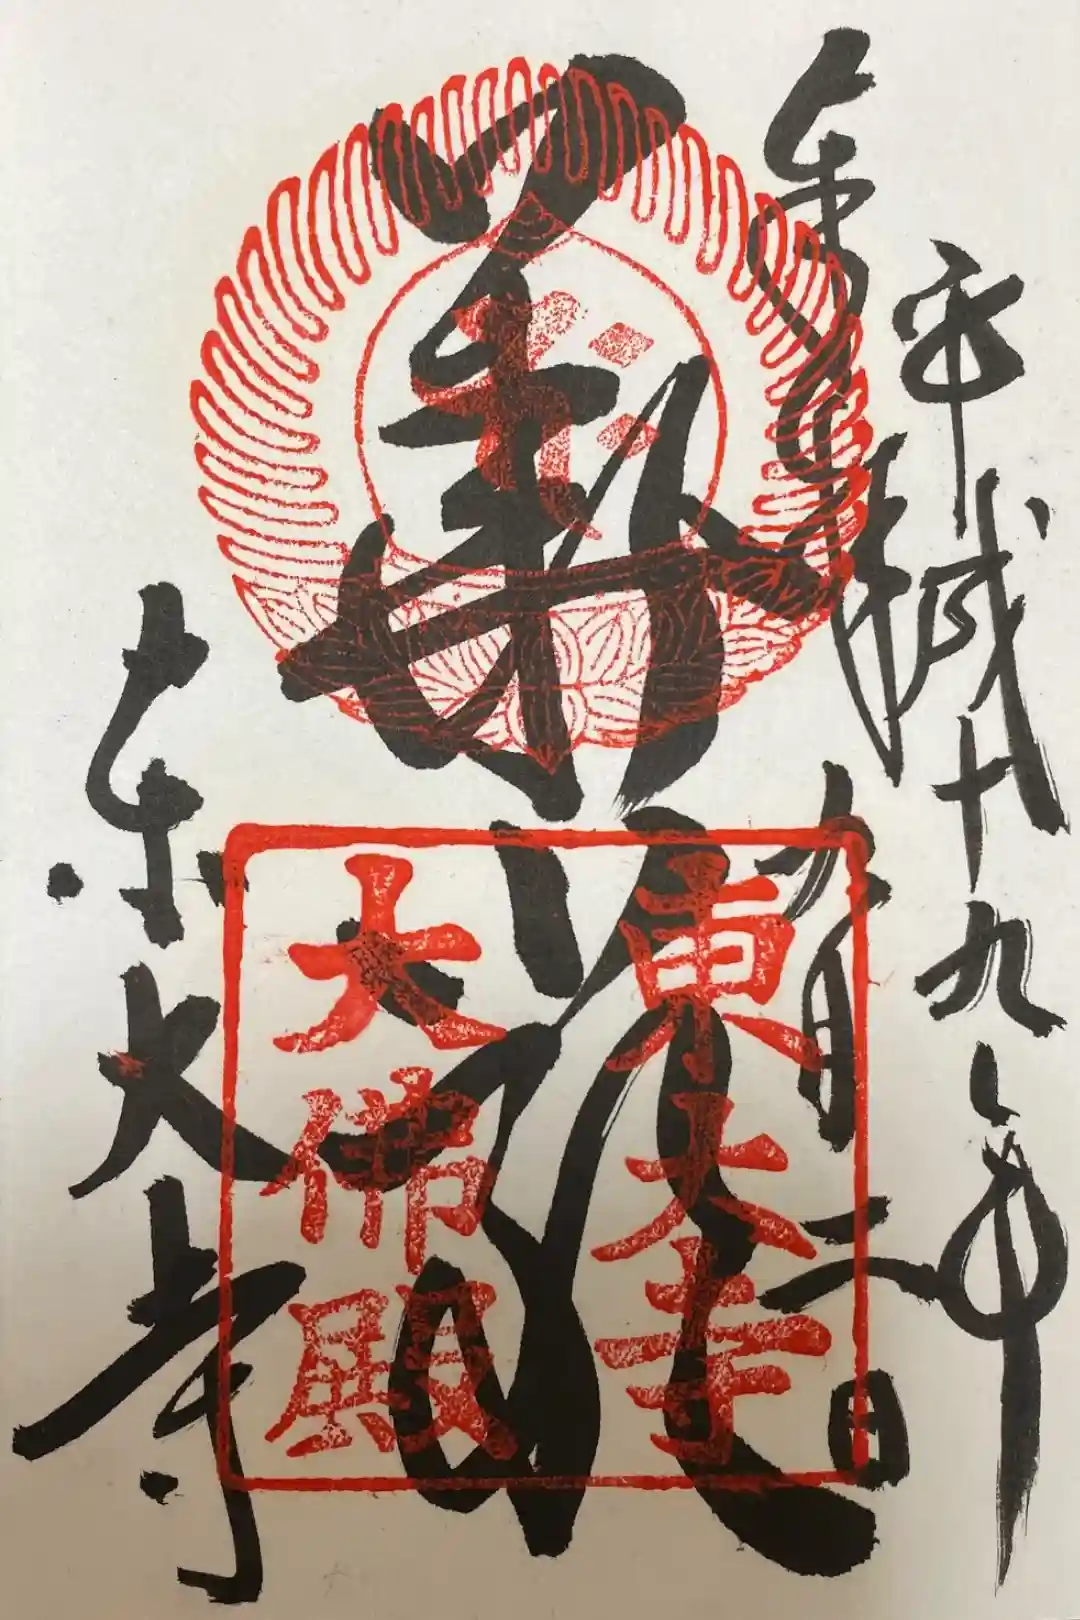 平成十九年
奉拝 月二日
華厳
東大寺
大佛殿
東大寺